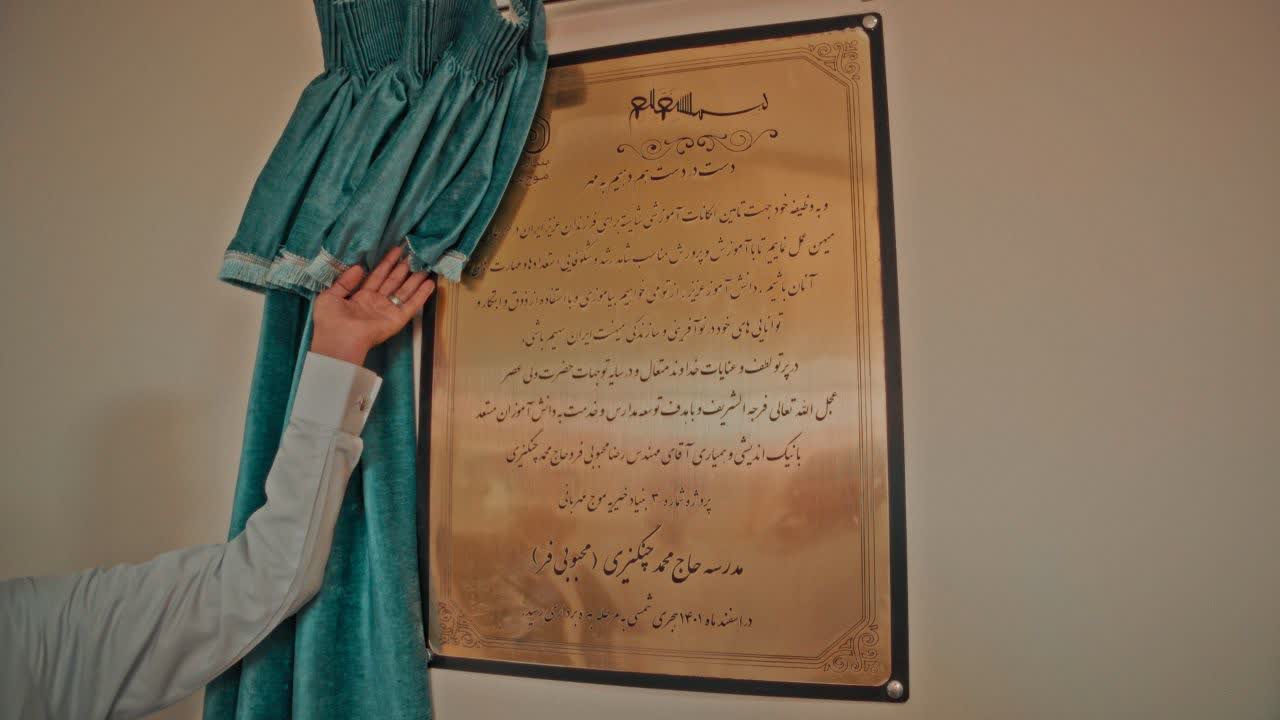 بسمه تعالی
بنیاد
موج
دست در دست هم دهیم به مهر
و به وظیفه خود جهت تامین امکانات آموزشی شایسته برای فرزندان عزیز ایران
میهن عمل نماییم تا با آموزش و پرورش مناسب شاهد رشد و شکوفایی استعدادها و مهارت
آنان باشیم . دانش آموز عزیز ، از تو می خواهیم بیاموزی و با استفاده از ذوق و ابتکار و
توانایی های خود در نوآفرینی و سازندگی میهنت ایران سهیم باشی.
در پرتو لطف و عنایات خداوند متعال و در سایه توجهات حضرت ولی عصر
عجل الله تعالی فرجه الشریف و با هدف توسعه مدارس و خدمت به دانش آموزان مستعد
با نیک اندیشی و همیاری آقای مهندس رضا محبوبی فر و حاج محمد چنگیزی
پروژه شماره ۳ بنیاد خیریه موج مهربانی
مدرسه حاج محمد چنگیزی (محبوبی فر)
در اسفند ماه ۱۴۰۱ هجری شمسی به مرحله بهره برداری رسید.